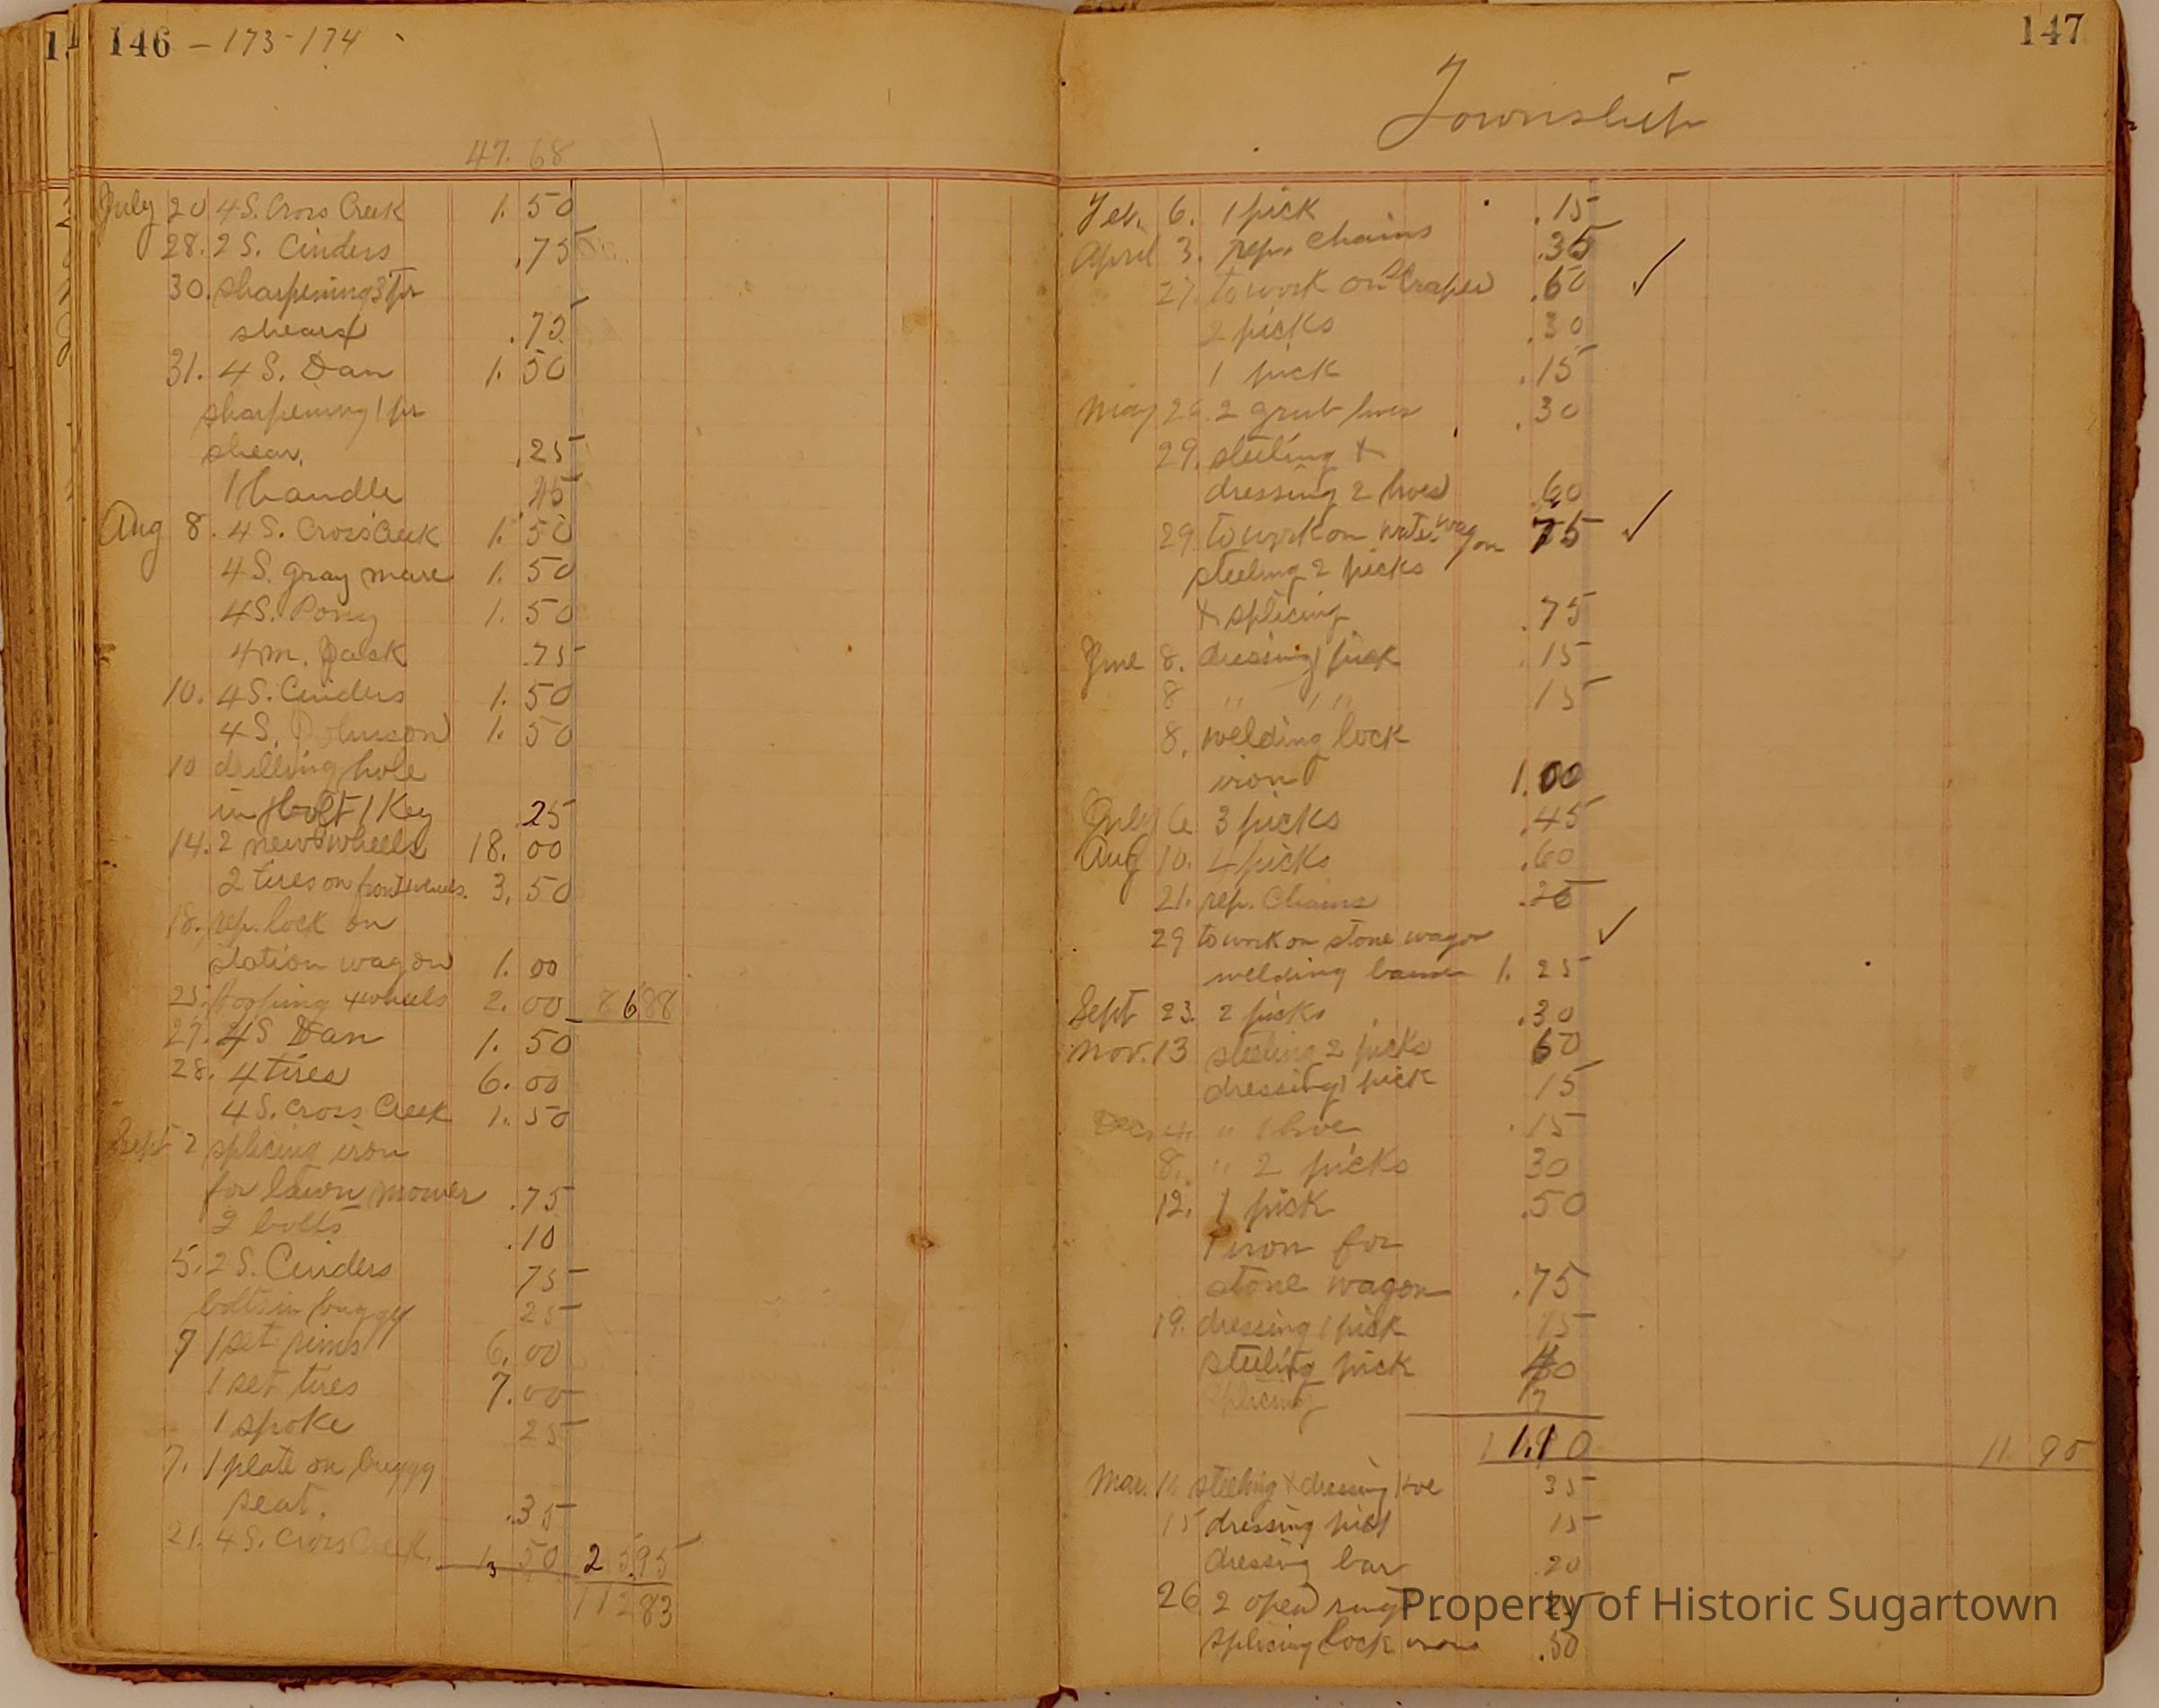 146 - 173-174
47.68
July 20 4 S. Cross Creek 1.50
28. 2 S. Cinders .75
30. sharpening 3 pr
shears .75
31. 4 S. Dan 1.50
sharpening 1 pr
shear. .25
1 handle .45
Aug 8. 4 S. Cross Creek 1.50
4 S. Gray mare 1.50
4 S. Pony 1.50
4 m. Jack .75
10. 4 S. Cinders 1.50
4 S. Johnson 1.50
10 drilling hole
in bolt 1 Key .25
14. 2 new wheels 18.00
2 tires on front wheels. 3.50
18. rep. lock on
station wagon 1.00
25. 4 wheels 2.00 86 88
27. 4 S Dan 1.50
28. 4 tires 6.00
4 S. Cross Creek 1.50
Sept 2 splicing iron
for lawn mower .75
2 bolts .10
5. 2 S. Cinders 75
bolts in buggy 25
7 1 set rims 6.00
1 set tires 7.00
1 spoke 25
7. 1 plate on buggy
seat. .35
21. 4 S. Cross Creek. 1.50 25.95
112 83
147
Township
Feb. 6. 1 pick .15
April 3. rep. chains .35
27. to work on Scraper .60 ✓
2 picks .30
1 pick .15
May 26. 2 grub hoes .30
29. steeling +
dressing 2 hoes .60
29 to work on water wagon 75 ✓
steeling 2 picks
+ splicing .75
June 8. dressing 1 pick .15
8 " 1 " 15
8. welding lock
iron 1.00
July 6 3 picks .45
Aug 10. 4 picks .60
21. rep. Chains
29 to work on stone wagon ✓
welding band 1.25
Sept 23. 2 picks .30
Nov. 13 steeling 2 picks 60
dressing 1 pick 15
Dec. 4. " 1 hoe .15
8. " 2 picks 30
12. 1 pick .50
1 iron for
stone wagon .75
19. dressing 1 pick 15
steeling pick
splicing
11. 95
Mar. 11 steeling + dressing hoe 35
15 dressing pick 15
dressing bar .20
26 2 open rings
splicing lock irons .50
Property of Historic Sugartown